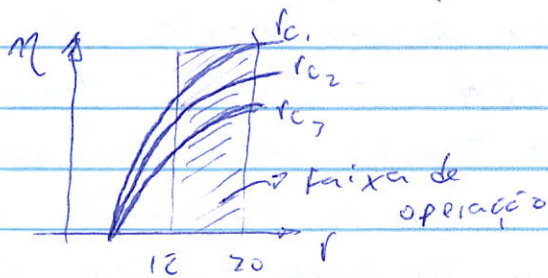 η
rc₁
rc₂
rc₃
faixa de
operação
12 20 r